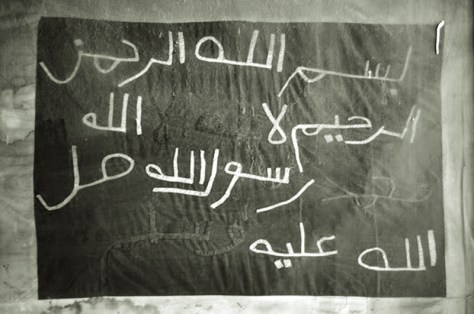 بسم الله الرحمن
الرحيم لا الله
رسول الله صل
الله عليه